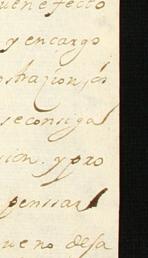 uen efecto
y encargo
ostrazion, es
se consiga
sion. y pro
penssar
ue no desa